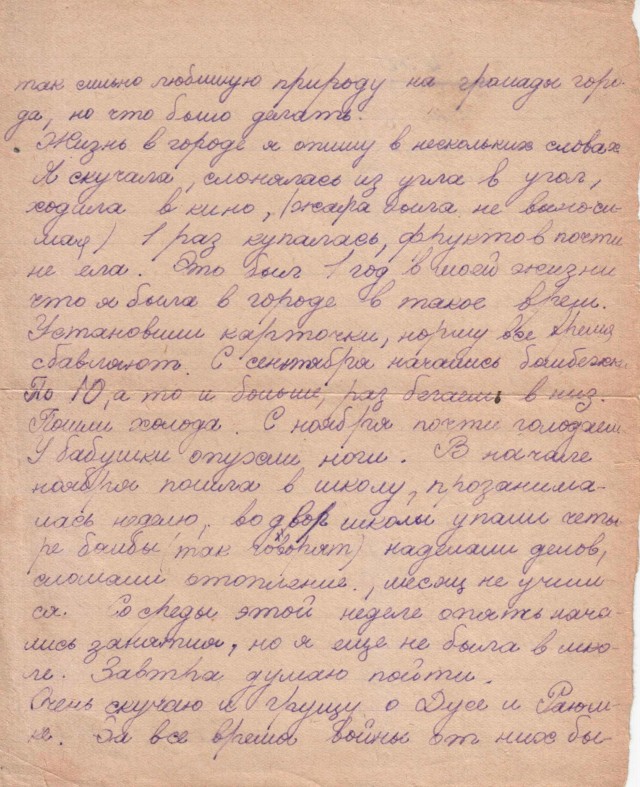 так сильно любимую природу на громады горо-
да, но что было делать.
Жизнь в городе я опишу в нескольких словах
Я скучала, слонялась из угла в угол,
ходила в кино, (жара была не выноси-
мая) 1 раз купалась, фруктов почти
не ела. Это был 1 год в моей жизни
что я была в городе в такое врем.
Установили карточки, норму все время
сбавляют. С сентября начались бомбежки
По 10, а то и больше, раз бегаем в низ.
Пошли холода. С ноября почти голодаем
У бабушки опухли ноги. В начале
ноября пошла в школу, прозанима-
лась неделю, во двор школы упали четы-
ре бомбы (так говорят) наделали делов,
сломали отопление, месяц не учили
ся. Со среды этой неделе опять нача-
лись занятия, но я еще не была в шко-
ле. Завтра думаю пойти.
Очень скучаю и грущу о Дусе и Раюш-
ке. За все время войны от них бы-